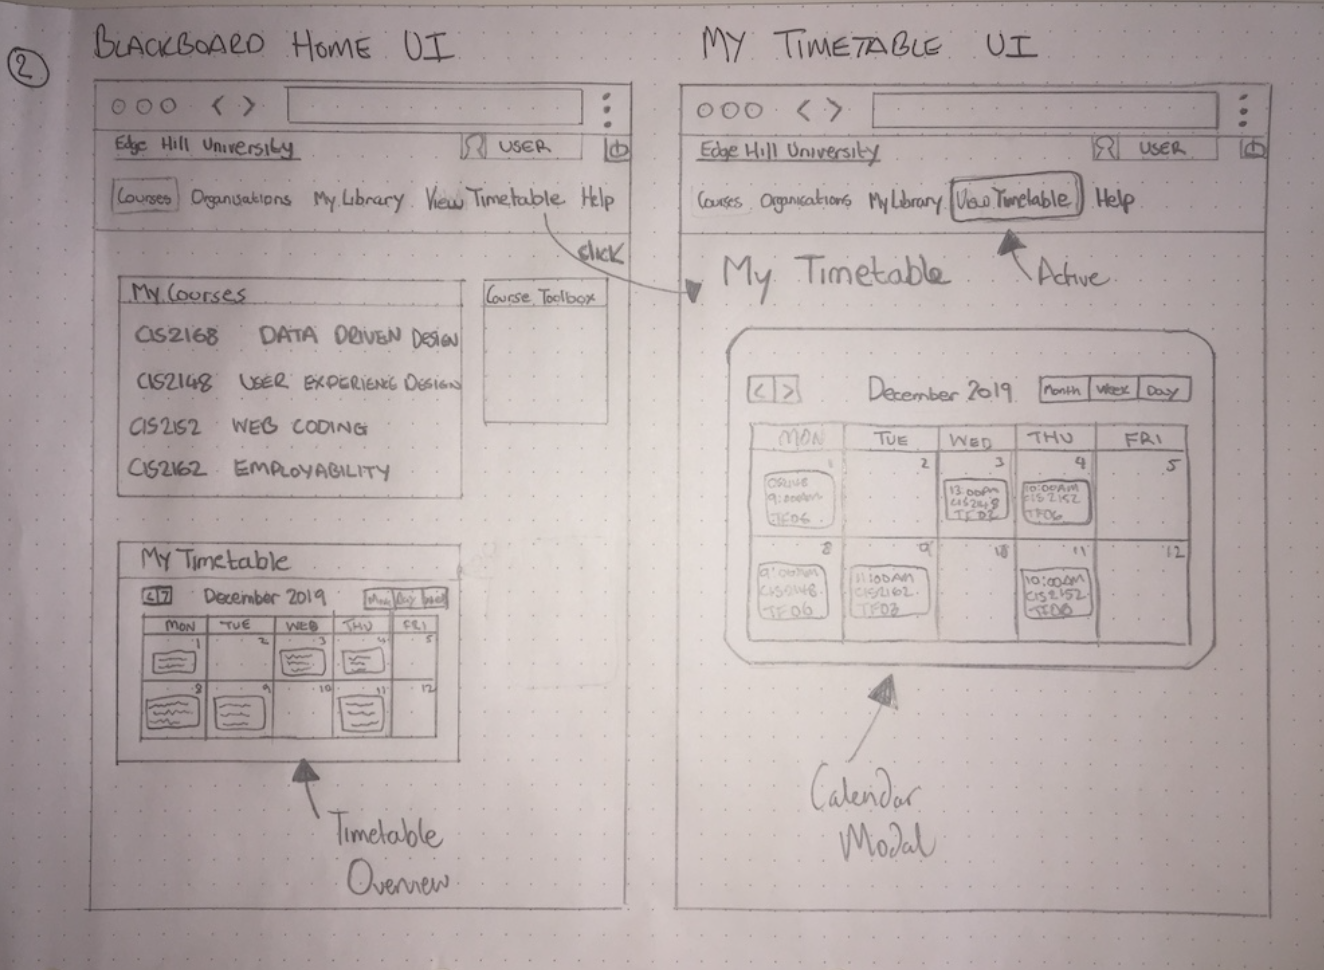 2
BLACKBOARD HOME UI
Edge Hill University USER
Courses Organisations My Library View Timetable Help
click
My Courses
CIS2168 DATA DRIVEN DESIGN
CIS2148 USER EXPERIENCE DESIGN
CIS2152 WEB CODING
CIS2162 EMPLOYABILITY
Course Toolbox
My Timetable
< > December 2019 Day
MON TUE WED THU FRI
1 2 3 4 5
8 9 10 11 12
Timetable
Overview
MY TIMETABLE UI
Edge Hill University USER
Courses Organisations My Library View Timetable Help
My Timetable
Active
< > December 2019 Month Week Day
MON TUE WED THU FRI
1 2 3 4 5
9:00am
TF06
13:00pm
CIS2148
TF02
10:00AM
CIS2152
TF06
8 9 10 11 12
9:00AM
CIS2148
TF06
11:00AM
CIS2162
TF03
10:00AM
CIS2152
TF06
Calendar
Modal